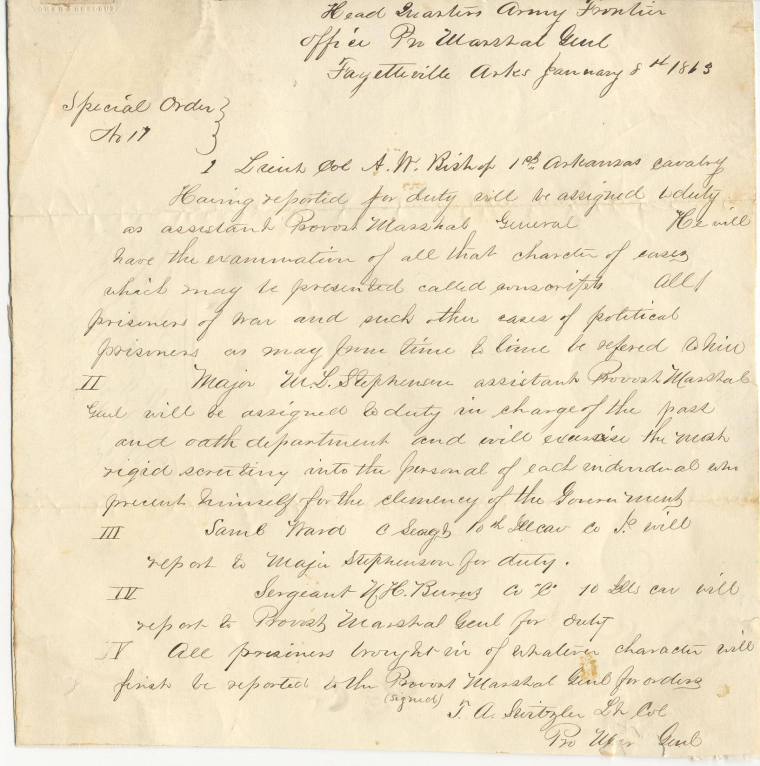 Head Quarters Army Frontier
Office Pro Marshal Genl
Fayetteville Arks January 8th 1863
Special Order
No 11
I Lieut Col A. W. Bishop 1st Arkansas Cavalry
Having reported for duty will be assigned to duty
as assistant Provost Marshal General He will
have the examination of all that charcter of cases
which may be presented called conscripts All
prisoners of war and such other cases of political
prisoners as may from time to time be refered to him
II Major M. L. Stephenson assistant Provost Marshal
Genl will be assigned to duty in charge of the past
and oath department and will exercise the most
rigid scrutiny into the personal of each individual who
present himself for the clemency of the Government
III Saml Ward C Seagt 10th Ill cav Co will
report to Major Stephenson for duty.
IV Sergeant H. Burns Co "C" 10 Ills cav will
report to Provost Marshal Genl for duty
V All prisoners brought in of whatever character will
first be reported to the Provost Marshal Genl for orders
(signed)
T. A. Switzler Lt Col
Pro Mar Genl